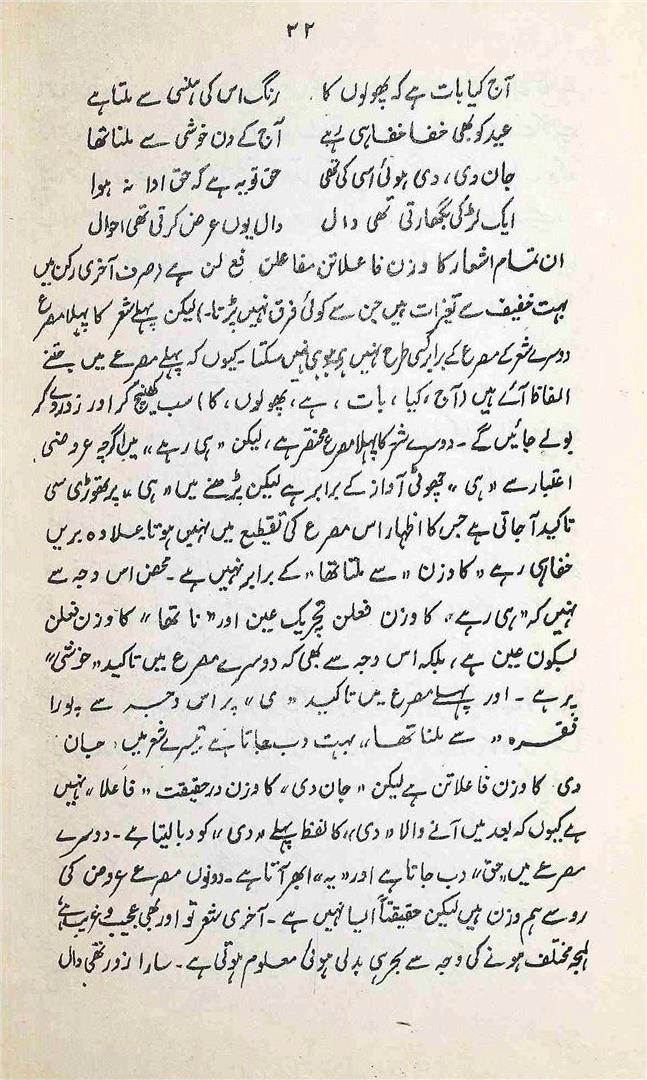 ۲۲
آج کیا بات ہے کہ پھولوں کا رنگ اس کی ہنسی سے ملتا ہے
عید کو بھی خفا خفا ہی رہے آج کے دن خوشی سے ملنا تھا
جان دی، دی ہوئی اسی کی تھی حق تو یہ ہے کہ حق ادا نہ ہوا
ایک لڑکی بگھارتی تھی دال دال یوں عرض کرتی تھی احوال
ان تمام اشعار کا وزن فاعلاتن مفاعلن فع لن ہے (صرف آخری رکن میں
بہت خفیف سے تغیرات ہیں جن سے کوئی فرق نہیں پڑتا۔) لیکن پہلے شعر کا پہلا مصرع
دوسرے شعر کے مصرع کے برابر کسی طرح نہیں ہو ہی نہیں سکتا۔ کیوں کہ پہلے مصرعے میں جتنے
الفاظ آئے ہیں (آج، کیا، بات، ہے، پھولوں، کا) سب کھینچ کر اور زور دے کر
بولے جائیں گے۔ دوسرے شعر کا پہلا مصرع مختصر ہے، لیکن "ہی رہے" میں اگرچہ عروضی
اعتبار سے "ہی" چھوٹی آواز کے برابر ہے لیکن پڑھنے میں "ہی" پر تھوڑی سی
تاکید آ جاتی ہے جس کا اظہار اس مصرع کی تقطیع میں نہیں ہوتا۔ علاوہ بریں
خفا ہی رہے" کا وزن "سے ملنا تھا" کے برابر نہیں ہے۔ محض اس وجہ سے
نہیں کہ "ہی رہے" کا وزن فعلن بتحریک عین اور "نا تھا" کا وزن فعلن
بسکون عین ہے، بلکہ اس وجہ سے بھی کہ دوسرے مصرع میں تاکید "خوشی"
پر ہے۔ اور پہلے مصرع میں تاکید "ہی" پر اس وجہ سے پورا
فقرہ "سے ملنا تھا" بہت دب جاتا ہے تیسرے شعر میں: جان
دی کا وزن فاعلاتن ہے لیکن "جان دی" کا وزن درحقیقت "فاعلا" نہیں
ہے کیوں کہ بعد میں آنے والا "دی" کا لفظ پہلے "دی" کو دبا لیتا ہے۔ دوسرے
مصرعے میں "حق" دب جاتا ہے اور "یہ" ابھر آتا ہے۔ دونوں مصرعے عروض کی
رو سے ہم وزن ہیں لیکن حقیقتاً ایسا نہیں ہے۔ آخری شعر تو اور بھی عجیب و غریب ہے
لہجہ مختلف ہونے کی وجہ سے بحر ہی بدلی ہوئی معلوم ہوتی ہے۔ سارا زور تھی دال